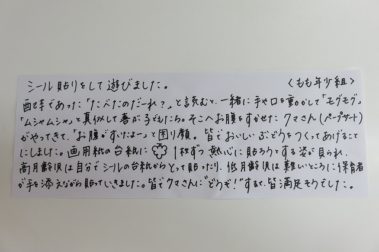 シール貼りをして遊びました。 〈もも年少組〉
「たべたのだーれ？」と読むと、一緒に手や口を動かして「モグモグ」
「ムシャムシャ」と真似して喜ぶ子どもたち。そこへお腹をすかせたクマさん（ペープサート）
がやってきて、“お腹がすいたよー”と困り顔。皆でおいしいぶどうをつくってあげること
にしました。画用紙の台紙に 1粒ずつ熱心に貼ろうとする姿が見られ、
高月齢児は自分でシールの台紙からとって貼ったり、低月齢児は難しいところに保育者
が手を添えながら貼っていきました。皆でクマさんに“どうぞ！”すると、皆満足そうでした。